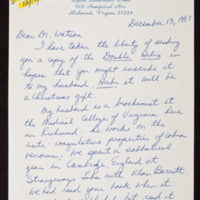 Richmond, Virginia 23226
December 13, 1987
Dear Dr. Watson,
I have taken the liberty of sending
you a copy of the Double Helix in
hopes that you might inscribe it
to my husband, it will be
a Christmas gift.
My husband is a biochemist at
the Medical College of Virginia, here
in Richmond. He works on the
anti-coagulative properties of cobra
venoms. We spent a sabbatical
year in Cambridge, England at
Strangeways Labs with Alan Barrett.
We had read your book when it
but read it